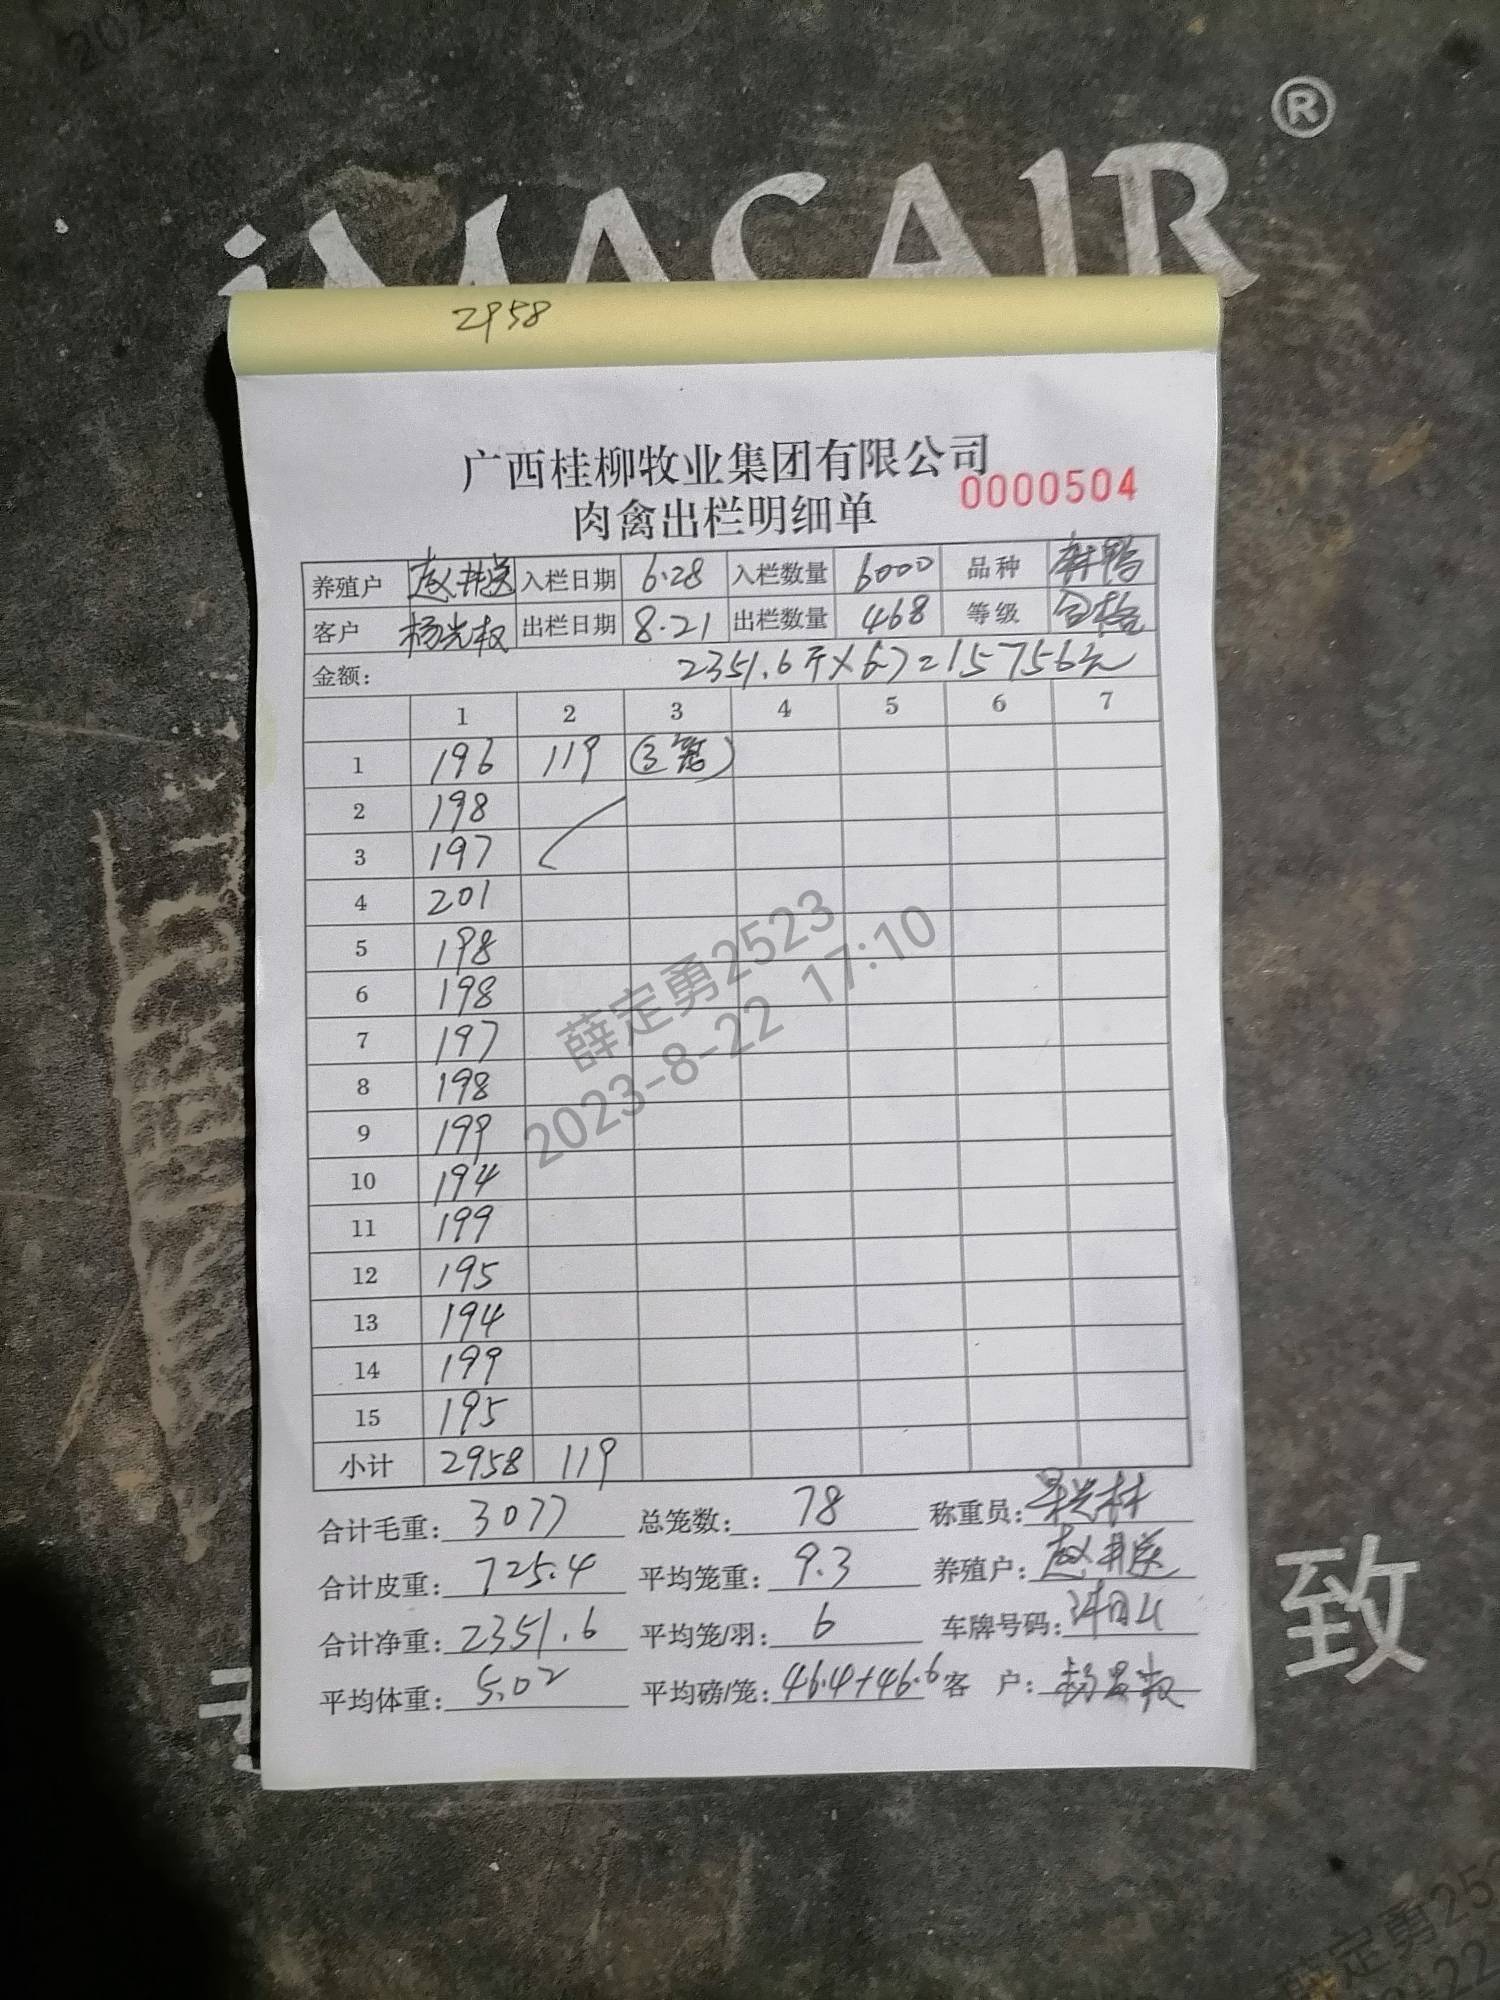 ®
iMACAIR
2958
广西桂柳牧业集团有限公司
肉禽出栏明细单 0000504
养殖户 赵井送 入栏日期 6.28 入栏数量 6000 品种
客户 杨光权 出栏日期 8.21 出栏数量 468 等级 合格
金额: 2351.6斤×6.7=15756元
1 2 3 4 5 6 7
1 196 119 (3笼)
2 198
3 197
4 201
5 198
6 198
7 197
8 198
9 199
10 194
11 199
12 195
13 194
14 199
15 195
小计 2958 119
合计毛重: 3077 总笼数: 78 称重员:
合计皮重: 725.4 平均笼重: 9.3 养殖户: 赵井送
合计净重: 2351.6 平均笼/羽: 6 车牌号码:
平均体重: 5.02 平均磅/笼: 46.4+46.6 客 户:
薛定勇2523
2023-8-22 17:10
致